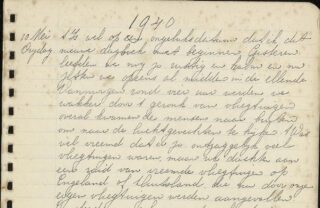 1940
10 Mei Ik wil op een ongeluksdatum dus ik dit
Vrijdag nieuwe dagboek met beginnen. Gisteren
leefden we nog zo rustig en kalm en nu
zitten we opeens al midden in de ellende
Vanmorgen rond vier uur werden we
wakker door 't geronk van vliegtuigen
overal kwamen de mensen naar buiten
om naar de luchtgevechten te kijken. 't Was
wel vreemd dat er zo ontzaggelijk veel
vliegtuigen waren, maar we dachten aan
een raid van vreemde vliegtuigen op
Engeland of Duitsland, die dan door onze
eigen vliegtuigen werden aangevallen